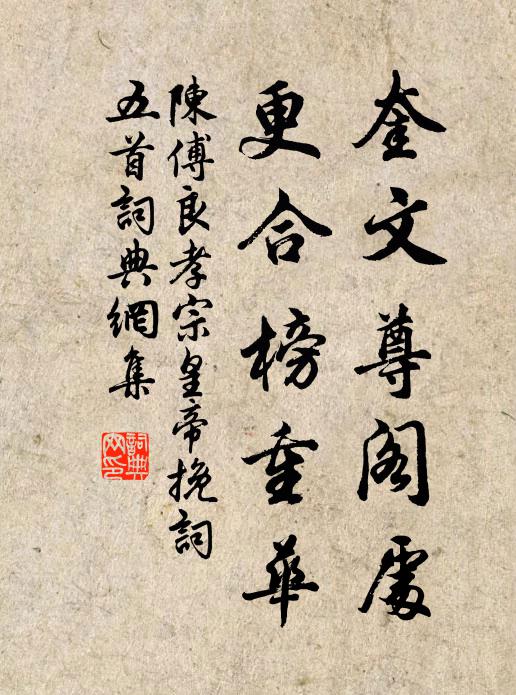 奎文尊閣處
更合榜重華
陳傅良孝宗皇帝挽詞
五首詞典網集
詞典
网印